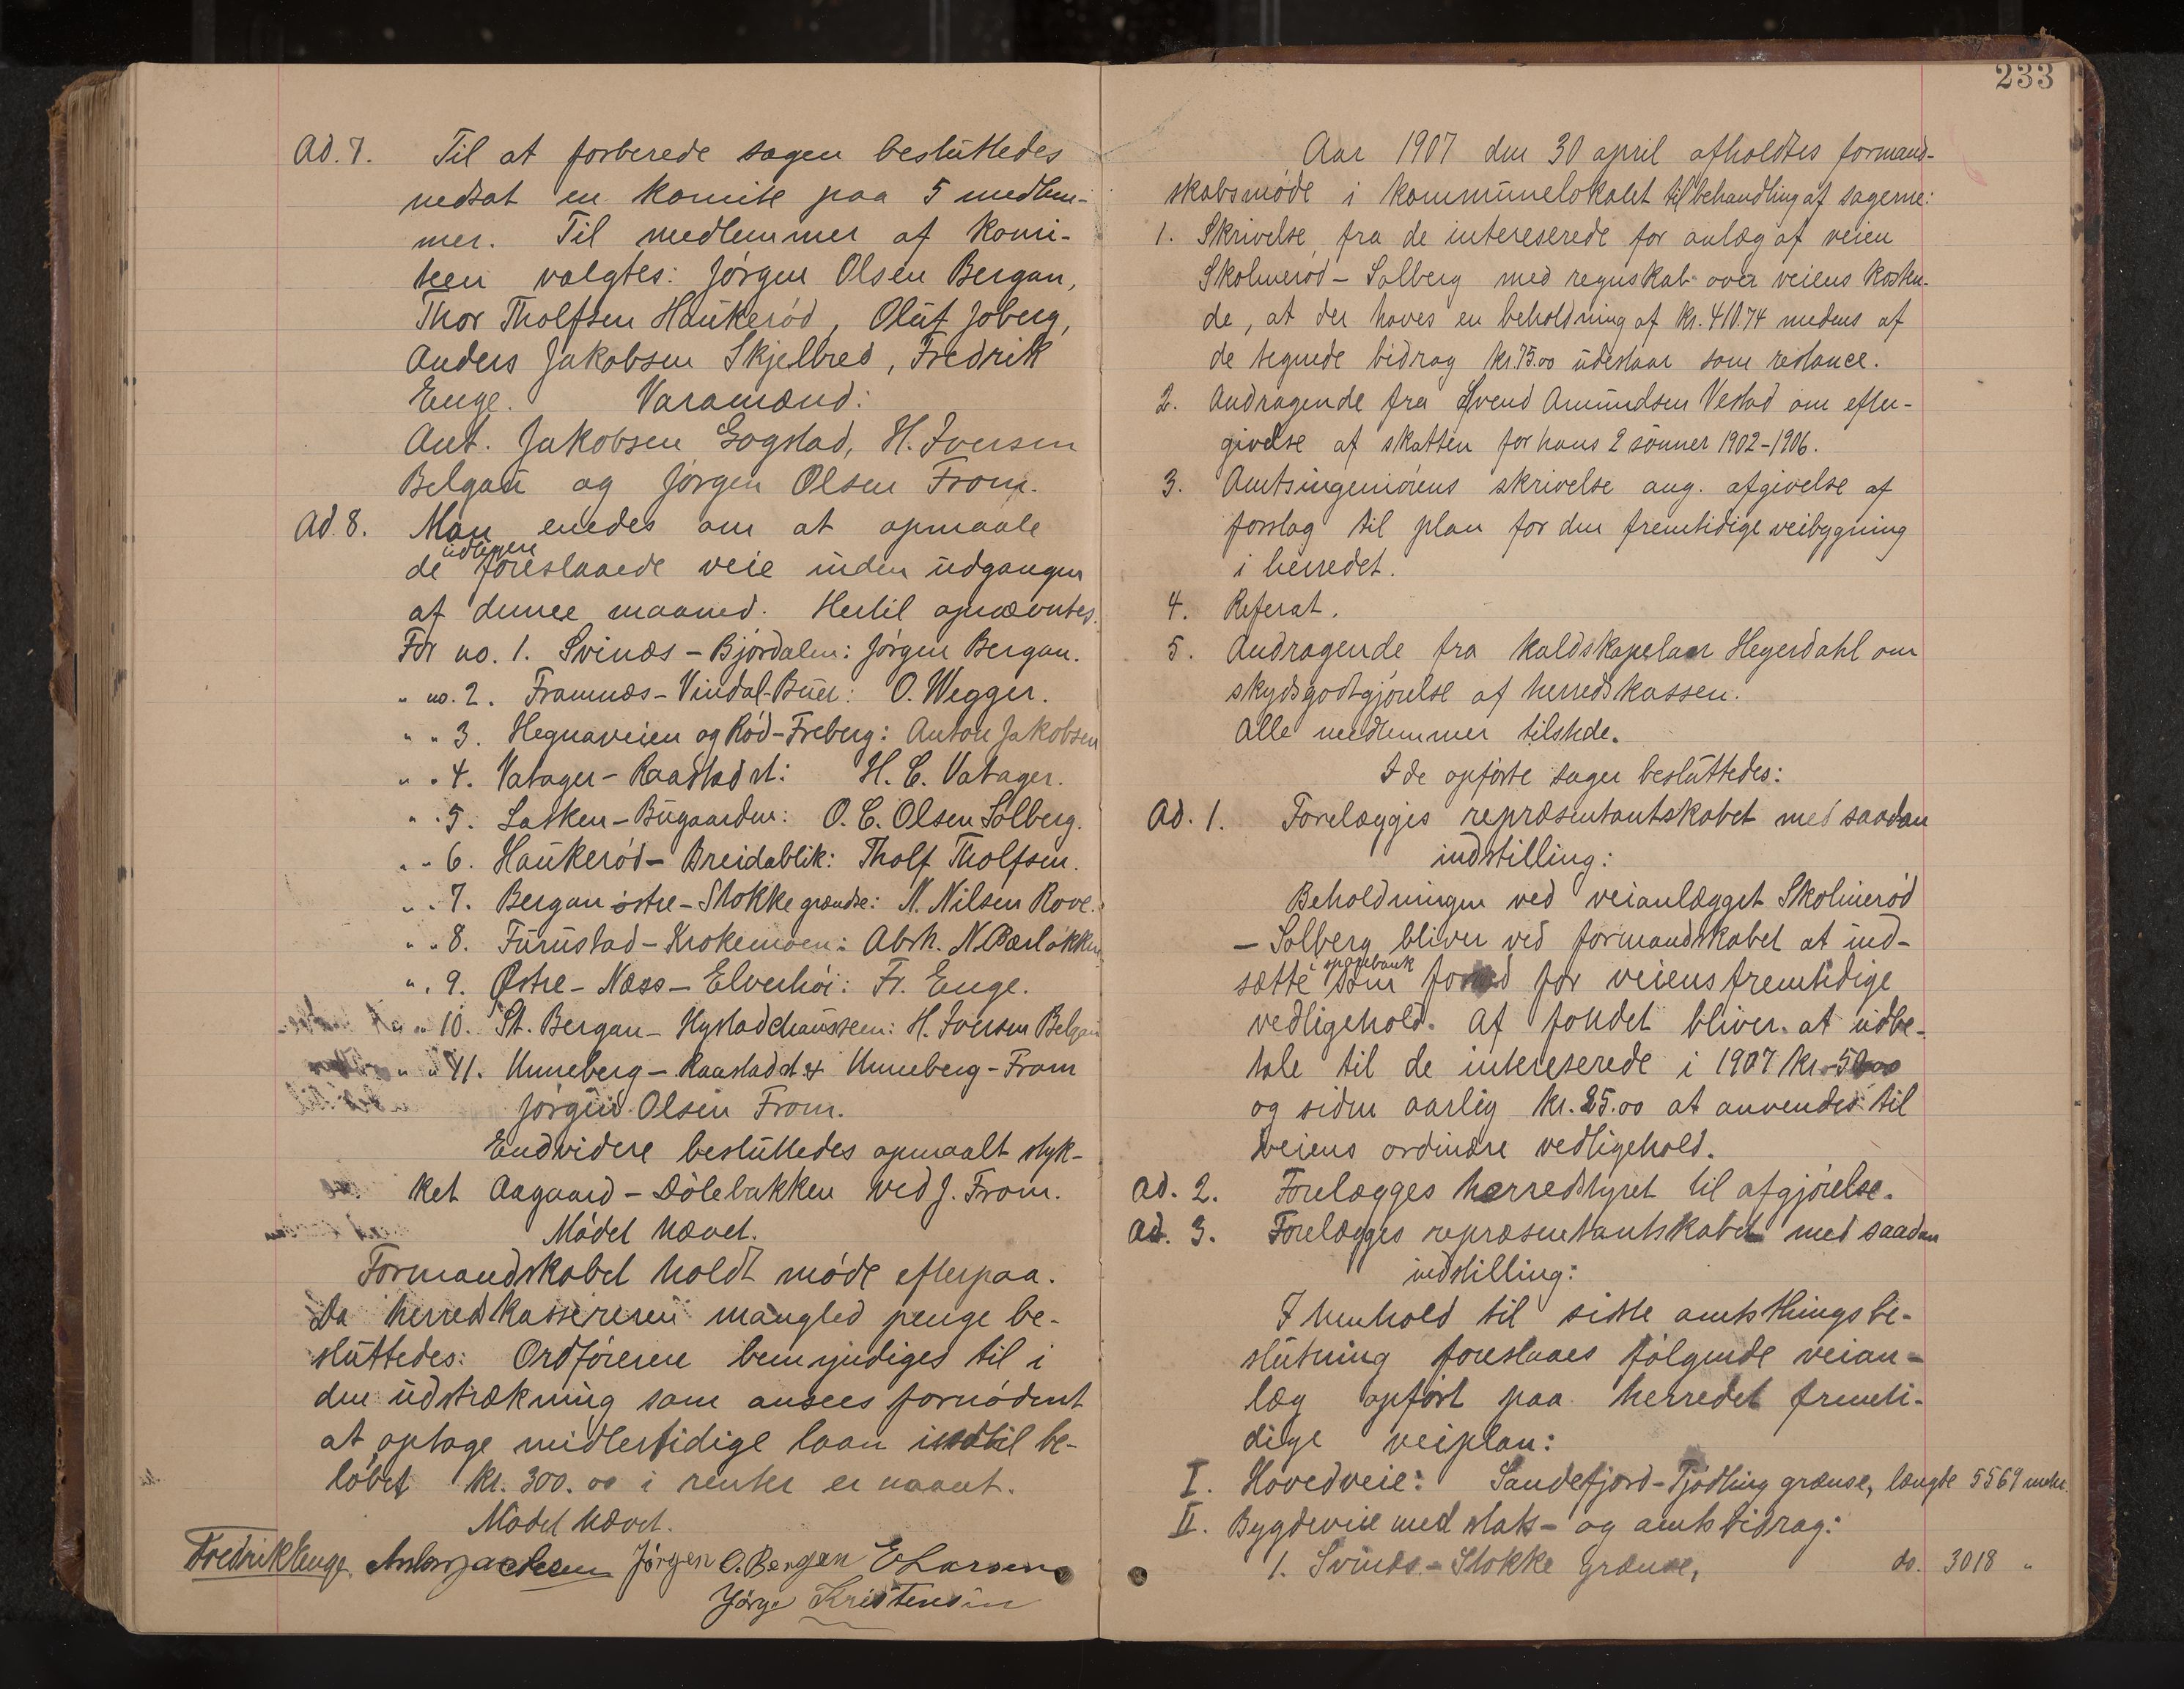 Ad. 7. Til at forberede sagen besluttedes
nedsat en komite paa 5 medlem-
mer. Til medlemmer af komi-
teen valgtes: Jørgen Olsen Bergan,
Thor Tholfsen Haukerød, Oluf Joberg,
Anders Jakobsen Skjelbred, Fredrik
Enge. Varamænd:
Ant. Jakobsen Gogstad, H. Iversen
Belgau og Jørgen Olsen From.
Ad. 8. Man enedes om at opmaale
udligere
de foreslaaede veie inden udgangen
af denne maaned. Hertil opnævntes.
For no. 1. Svinæs - Bjørdalen: Jørgen Bergan.
" no. 2. Framnæs - Vindal - Buer: O. Wegger.
" " 3. Hegnaveien og Rød - Freberg: Anton Jakobsen
" " 4. Vatager - Raastad st: H. C. Vatager.
" " 5. Lasken - Bugaarden: O. C. Olsen Solberg.
" " 6. Haukerød - Breidablik: Tholf Tholfsen.
" " 7. Bergan østre - Stokke grændse: N. Nilsen Rove.
" " 8. Furustad - Krokemoen: Abrh. N. Pærløkken
" " 9. Østre - Næss - Elverhöi: Fr. Enge.
" " 10. St. Bergan - Hystadchausseen: H. Iversen Belgau
" " 11. Unneberg - Raastad st & Unneberg - From
Jørgen Olsen From.
Endvidere besluttedes opmaalt styk-
ket Aagaard - Dølebakken ved J. From.
Mødet hævet.
Formandskabet holdt møde efterpaa.
Da herredskassereren mangled penge be-
sluttedes: Ordføreren bemyndiges til i
den udstrækning som ansees fornødent
at optage midlertidige laan indtil be-
løbet kr. 300.00 i renter er naaet.
Mødet hævet.
Fredrik Enge Anton Jacobsen Jørgen O. Bergan E Larsen
Jørgen Kristensen
233
Aar 1907 den 30 april afholdtes formand-
skabsmøde i kommunelokalet til behandling af sagerne:
1. Skrivelse fra de intereserede for anlæg af veien
Skolmerød - Solberg med regnskab over veiens kosten-
de, at der haves en beholdning af kr. 410.74 medens af
de tegnede bidrag kr. 75.00 udestaar som restance.
2. Andragende fra Svend Amundsen Vestad om efter-
givelse af skatten for hans 2 sønner 1902-1906.
3. Amtsingeniørens skrivelse ang. afgivelse af
forslag til plan for den fremtidige veibygning
i herredet.
4. Referat.
5. Andragende fra kaldskapelan Heyerdahl om
skydsgodtgjørelse af herredskassen.
Alle medlemmer tilstede.
I de opførte sager besluttedes:
Ad. 1. Forelægges repræsentantskabet med saadan
indstilling:
Beholdningen ved veianlægget Skolmerød
- Solberg bliver ved formandskabet at ind-
spagebank
sætte som fond for veiens fremtidige
vedligehold. Af fondet bliver at udbe-
tale til de intereserede i 1907 kr. 50.00
og siden aarlig kr. 25.00 at anvendes til
veiens ordinære vedligehold.
ad. 2. Forelægges herredstyret til afgjørelse.
ad. 3. Forelægges repræsentantskabet med saadan
indstilling:
I henhold til sidste amtsthingsbe-
slutning foreslaaes følgende veian-
læg opført paa herredet fremti-
dige veiplan:
I. Hovedveie: Sandefjord - Tjødling grænse, længde 5569 meter.
II. Bygdeveie med stats- og amtsbidrag:
1. Svinæs - Stokke grænse, do. 3018 "